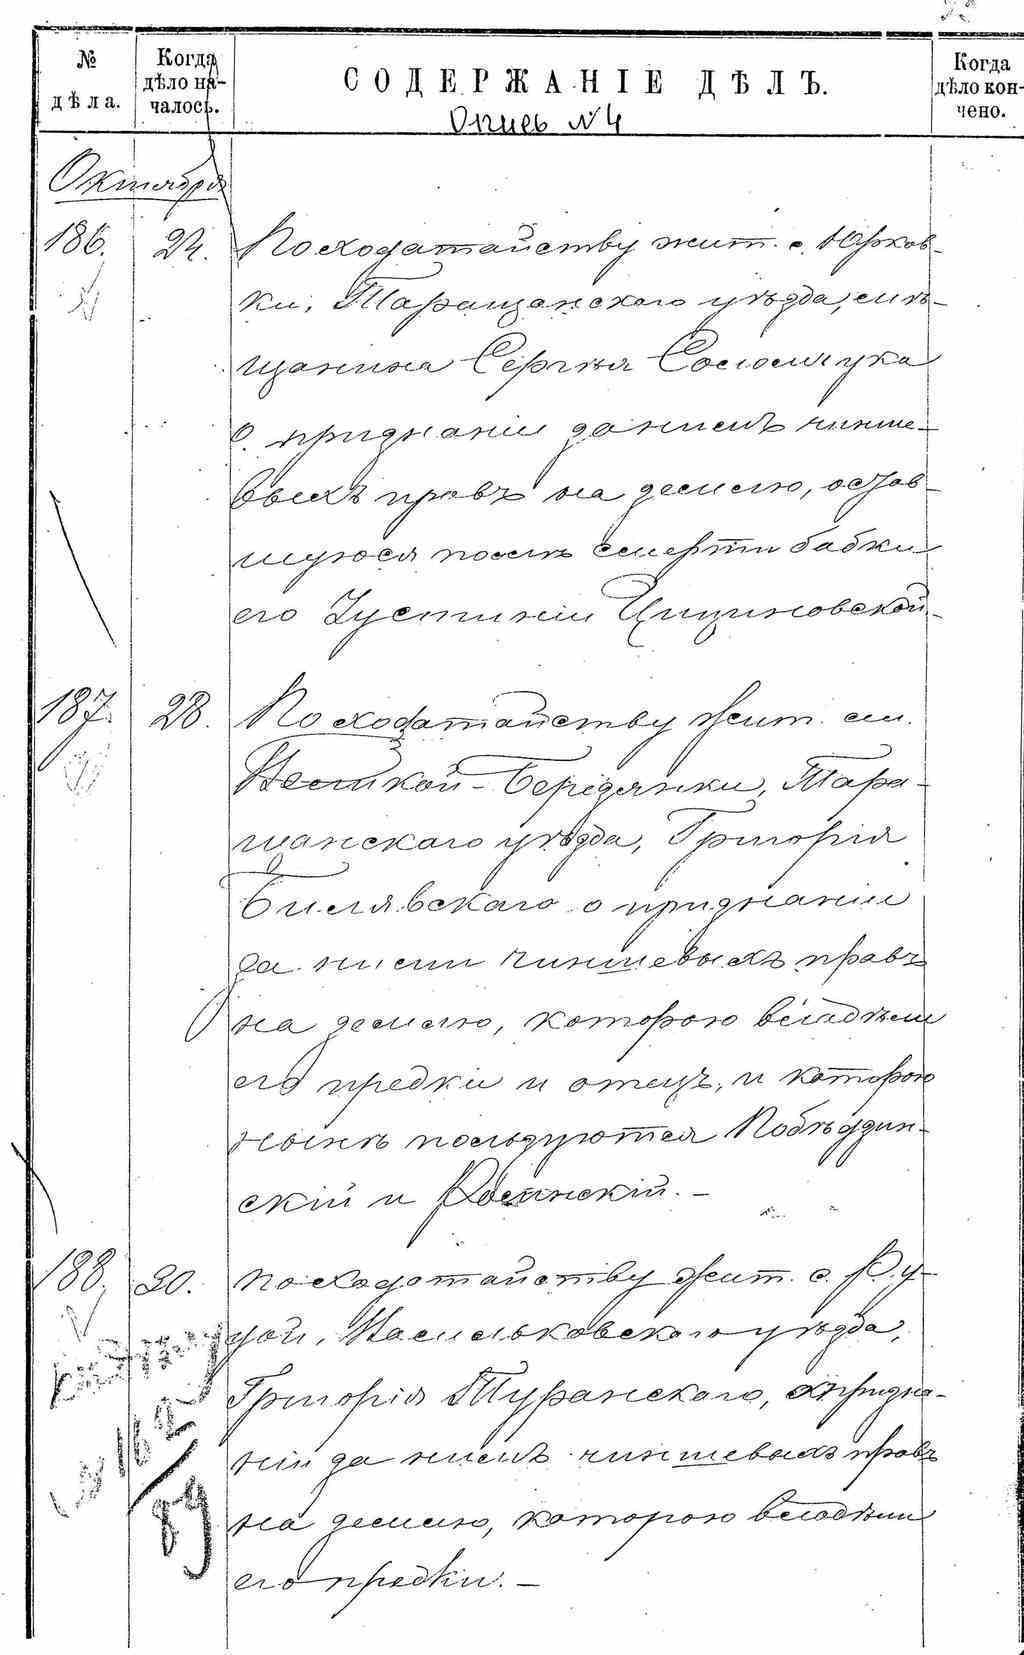 № дѣла.
Когда дѣло началось.
СОДЕРЖАНІЕ ДѢЛЪ.
Когда дѣло кончено.
Опись №4
Октября
186. 24. По ходатайству жит. с. Юрков-
ки, Таращанскаго уѣзда, мѣ-
щанина Сергѣя Соломчука
о признаніи за нимъ чинше-
выхъ правъ на землю, остав-
шуюся послѣ смерти бабки
его Іустиніи Цициновской.
187. 28. По ходатайству жит. м.
Бередянки, Тара-
щанскаго уѣзда, Григорія
Билявскаго о признаніи
за ними чиншевыхъ правъ
на землю, которою владѣли
его предки и отецъ, и которою
нынѣ пользуются Побѣдзин-
скій и Росинскій. –
188. 30. По ходатайству жит. с. Ру-
дой, Васильковскаго уѣзда,
Григорія Туранскаго, о призна-
ніи за нимъ чиншевыхъ правъ
на землю, которою владѣли
его предки. –
162/89